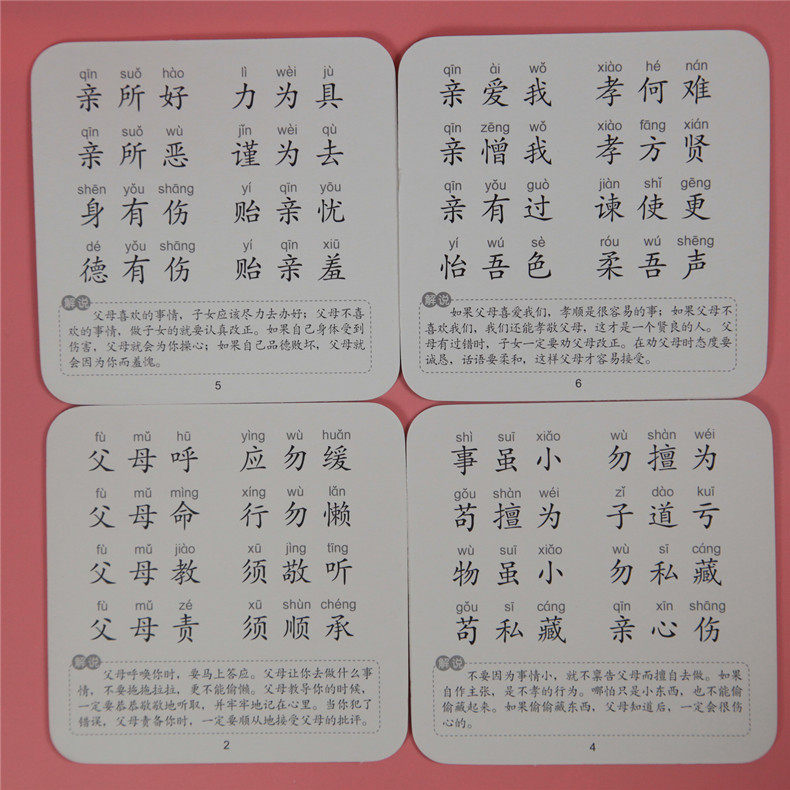 qīn suǒ hào lì wèi jù
亲所好 力为具
qīn suǒ wù jǐn wèi qù
亲所恶 谨为去
shēn yǒu shāng yí qīn yōu
身有伤 贻亲忧
dé yǒu shāng yí qīn xiū
德有伤 贻亲羞
解说
父母喜欢的事情，子女应该尽力去办好；父母不喜
欢的事情，做子女的就要认真改正。如果自己身体受到
伤害，父母就会为你操心；如果自己品德败坏，父母就
会因为你而羞愧。
5
qīn ài wǒ xiào hé nán
亲爱我 孝何难
qīn zēng wǒ xiào fāng xián
亲憎我 孝方贤
qīn yǒu guò jiàn shǐ gēng
亲有过 谏使更
yí wú sè róu wú shēng
怡吾色 柔吾声
解说
如果父母喜爱我们，孝顺是很容易的事；如果父母不
喜欢我们，我们还能孝敬父母，这才是一个贤良的人。父
母有过错时，子女一定要劝父母改正。在劝父母时态度要
诚恳，话语要柔和，这样父母才容易接受。
6
fù mǔ hū yìng wù huǎn
父母呼 应勿缓
fù mǔ mìng xíng wù lǎn
父母命 行勿懒
fù mǔ jiào xū jìng tīng
父母教 须敬听
fù mǔ zé xū shùn chéng
父母责 须顺承
解说
父母呼唤你时，要马上答应。父母让你去做什么事
情，不要拖拖拉拉，更不能偷懒。父母教导你的时候，
一定要恭恭敬敬地听取，并牢牢地记在心里。当你犯了
错误，父母责备你时，一定要顺从地接受父母的批评。
2
shì suī xiǎo wù shàn wéi
事虽小 勿擅为
gǒu shàn wéi zǐ dào kuī
苟擅为 子道亏
wù suī xiǎo wù sī cáng
物虽小 勿私藏
gǒu sī cáng qīn xīn shāng
苟私藏 亲心伤
解说
不要因为事情小，就不禀告父母而擅自去做。如果
自作主张，是不孝的行为。哪怕只是小东西，也不能偷
偷藏起来。如果偷偷藏东西，父母知道后，一定会很伤
心的。
4